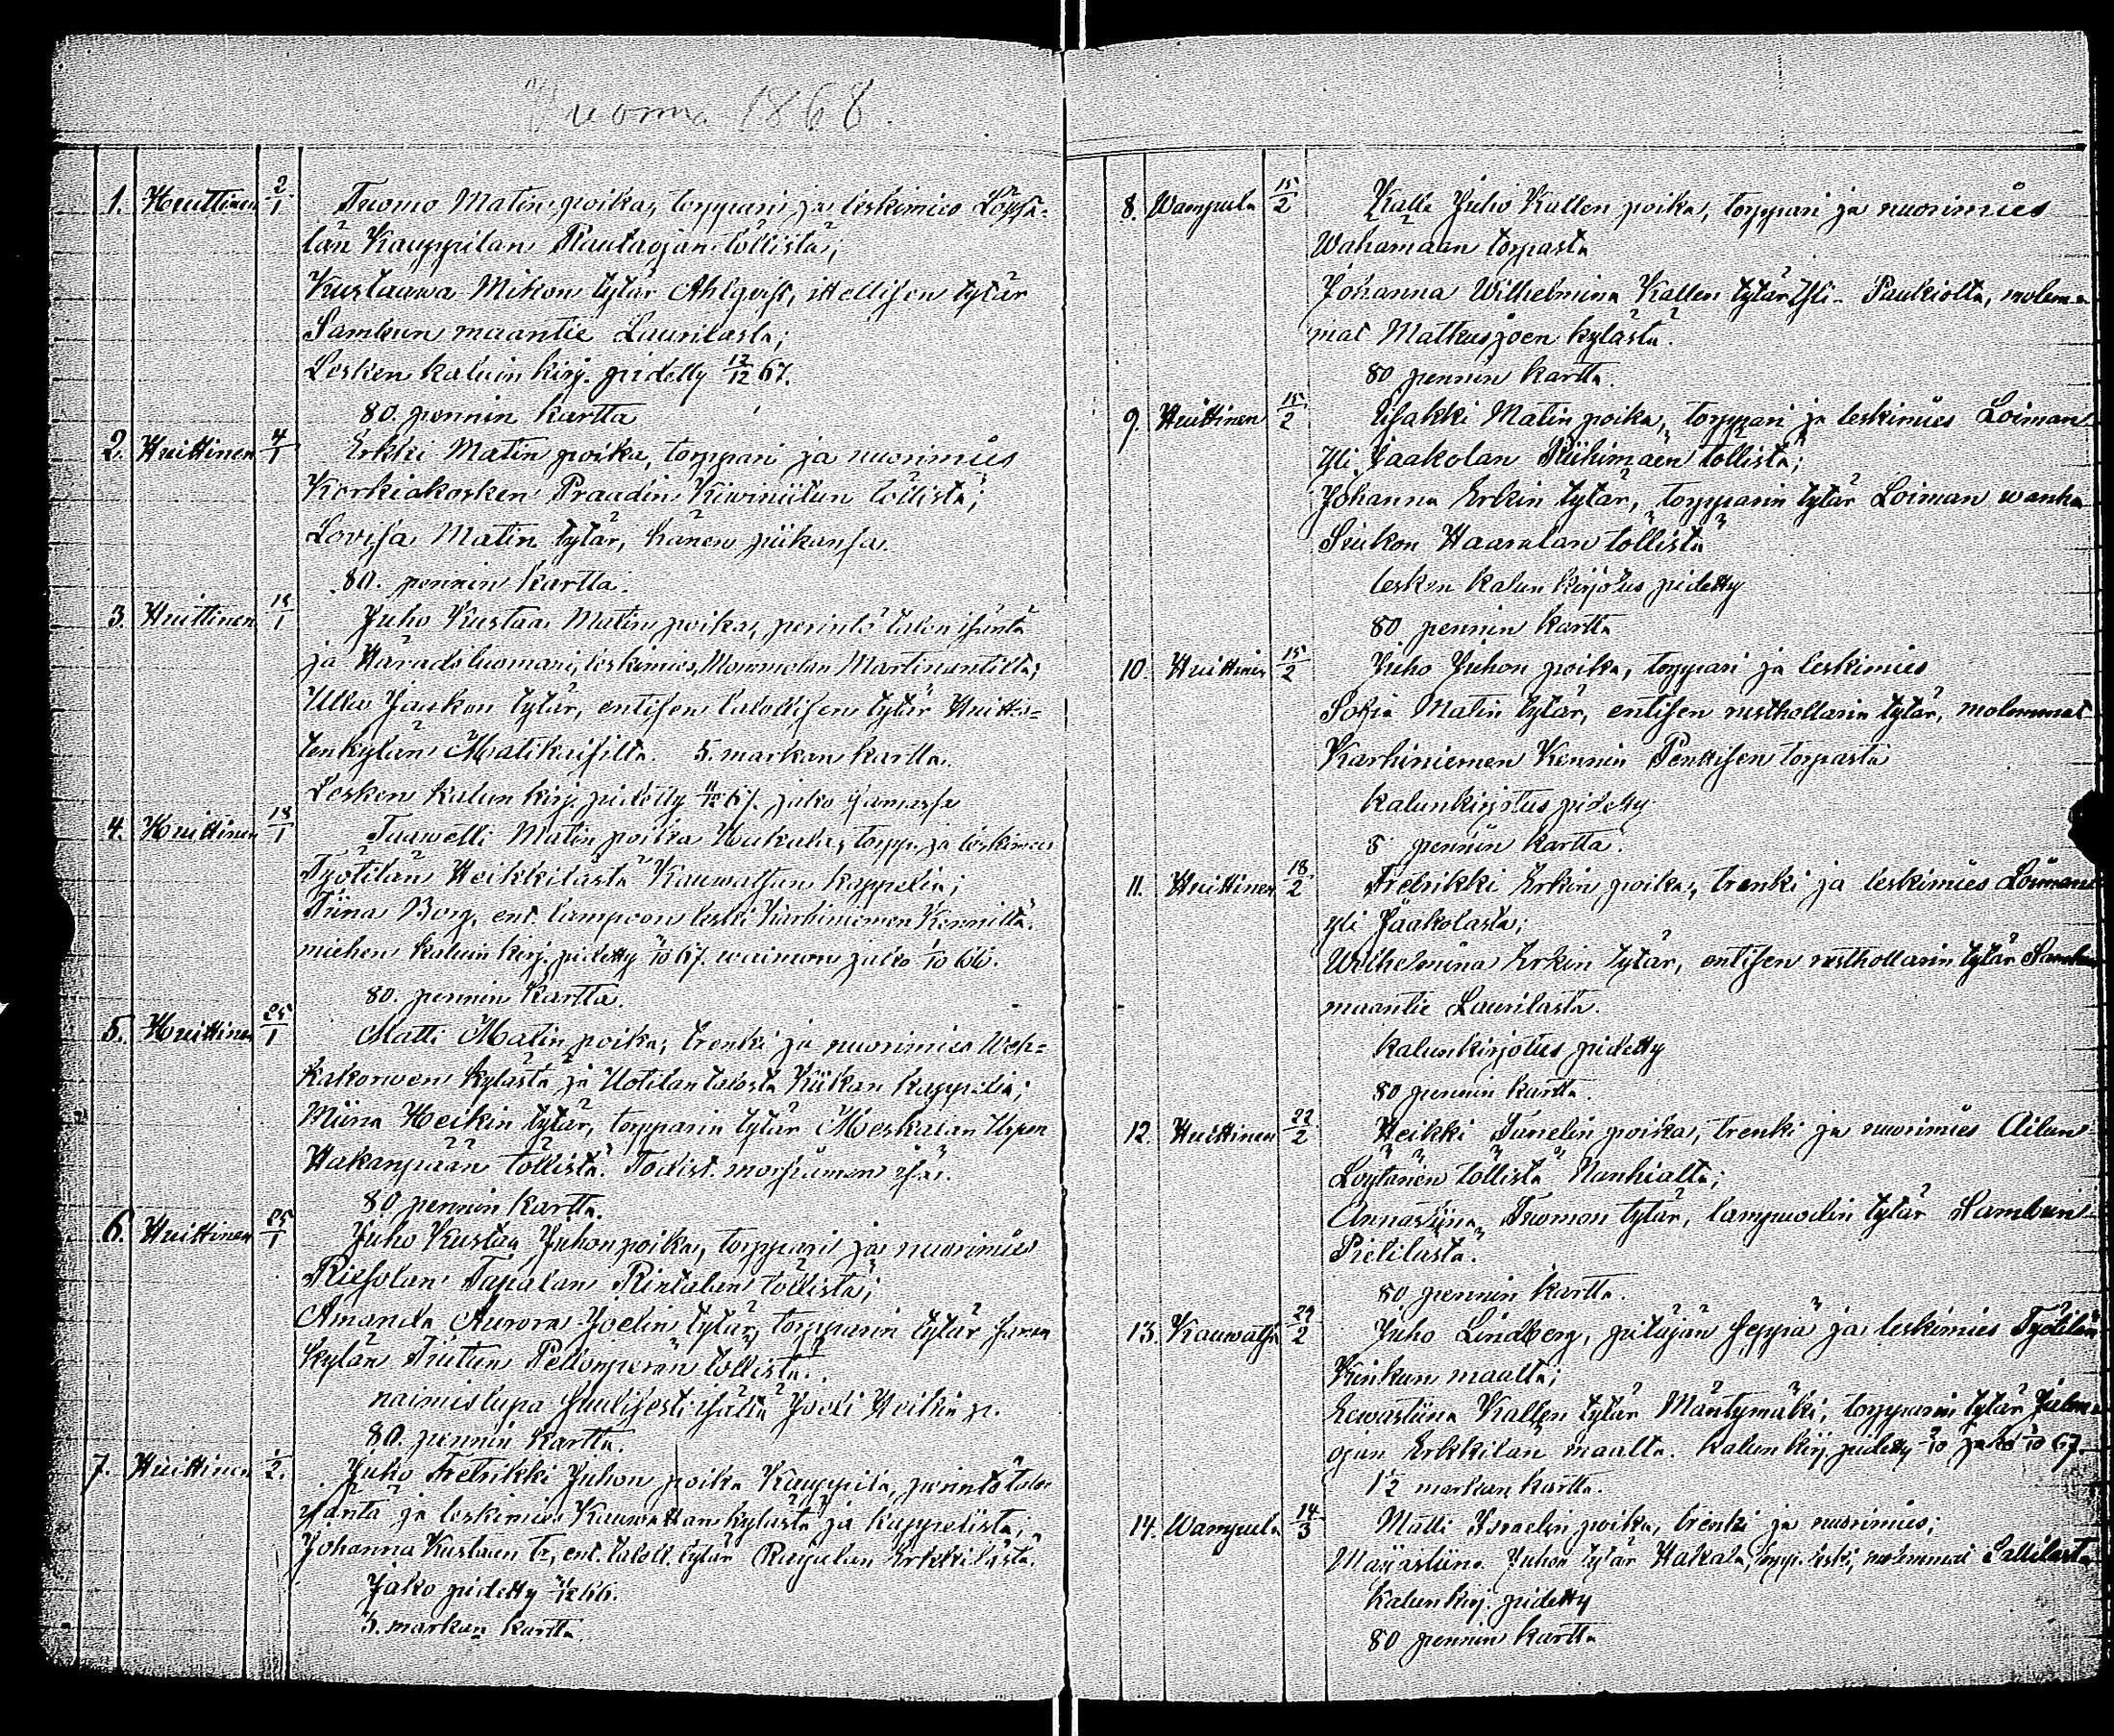 Vuonna 1868.
1. Huittinen 2/1 Tuomo Matin poika, torppari ja leskimies Loppi=
län Kauppilan Rautaojan töllistä;
Kustaawa Mikon tytär Ahlqvist, ittellisen tytär
Sambun maantie Laurilasta;
Lesken kaluin kirj. pidetty 12/12 67.
80. pennin kartta
2. Huittinen 4/1 Erkki Matin poika, torppari ja nuorimies
Korkiakosken Praadin Kiwiniitun töllistä;
Lovisa Matin tytär, hänen piikansa.
80. pennin kartta.
3. Huittinen 18/1 Juho Kustaa Matin poika, perintö talon isäntä
ja Häradstuomari, leskimies, Mommolan Martinantilta;
Ulla Jaakon tytär, entisen talollisen tytär Huittis=
tenkylän Matikaisilta. 5. markan kartta.
Lesken kalun kirj. pidetty 67. jako samassa
4. Huittinen 18/1 Taawetti Matin poika Haukala, torpp. ja leskimies
Työtilän Heikkilästä Kauwatsan kappelia;
Tiina Borg, ent. lampuon leski Karhiniemen Kenniltä.
miehen kaluin kirj. pidetty 67. waimon jako 66.
80. pennin kartta.
5. Huittinen 25/1 Matti Matin poika, trenki ja nuorimies Weh=
kakorwen kylästä ja Uotilan talosta Kiikan kappelia;
Miina Heikin tytär, torpparin tytär Meskalan Uspen
Hakanpään töllistä. Todist. morsiamen isä.
80 pennin kartta.
6. Huittinen 25/1 Juho Kustaa Juhon poika, torppari ja nuorimies
Riesolan Tapalan Rintalan töllistä;
Amanda Aurora Joelin tytär, torpparin tytär saman
kylän Triitun Pellonperän töllistä.
naimislupa suulisesti isältä Joeli Heikin p.
80. pennin kartta.
7. Huittinen 1/2. Juho Fretrikki Juhon poika Kauppila, perintö talon
isäntä ja leskimies Kauwattan kylästä ja kappelista;
Johanna Kustaan tr, ent. taloll. tytär Raijalan Erkkilästä.
Jako pidetty 66.
3. markan kartta.
8. Wampula 15/2 Kalle Juho Kallen poika, torppari ja nuorimies
Wahamaan torpasta
Johanna Wilhelmina Kallen tytär Yli-Paukiolta, molem=
mat Matkusjoen kylästä.
80 pennin kartta.
9. Huittinen 15/2 Isakki Matin poika, torppari ja leskimies Loiman
yli Jaakolan Riihimäen töllistä;
Johanna Erkin tytär, torpparin tytär Loiman wanha
Seukon Haaralan töllistä
lesken kalun kirjotus pidetty
80 pennin kartta
10. Huittinen 15/2 Juho Juhon poika, torppari ja leskimies
Sofia Matin tytär, entisen rusthollarin tytär, molemmat
Karhiniemen Kennin Penttisen torpasta
kalunkirjotus pidetty
8 pennin kartta.
11. Huittinen 18/2 Fretrikki Erkin poika, trenki ja leskimies Loiman
yli Jaakolasta;
Wilhelmiina Erkin tytär, entisen rusthollarin tytär Sambun
maantie Laurilasta.
kalunkirjotus pidetty
80 pennin kartta.
12. Huittinen 22/2 Heikki Tanelin poika, trenki ja nuorimies Ailan
Löytänen töllistä Nanhialta;
Annastiina Tuomon tytär, lampuodin tytär Sambun
Pietilästä.
80 pennin kartta.
13. Kauwatsa 29/2 Juho Lindberg, pitäjän seppä ja leskimies Työtilän
Kinkun maalta;
Eewastiina Kallen tytär Mäntymäki, torpparin tytär
ojan Erkkilän maalta. Kalunkirj. pidetty jako 67.
1 1/2 markan kartta.
14. Wampula 14/3 Matti Israelin poika, trenki ja nuorimies;
Majastiina Juhon tytär Hakala, torpp. leski, molemmat Sallilasta
kalunkirj. pidetty
80 pennin kartta